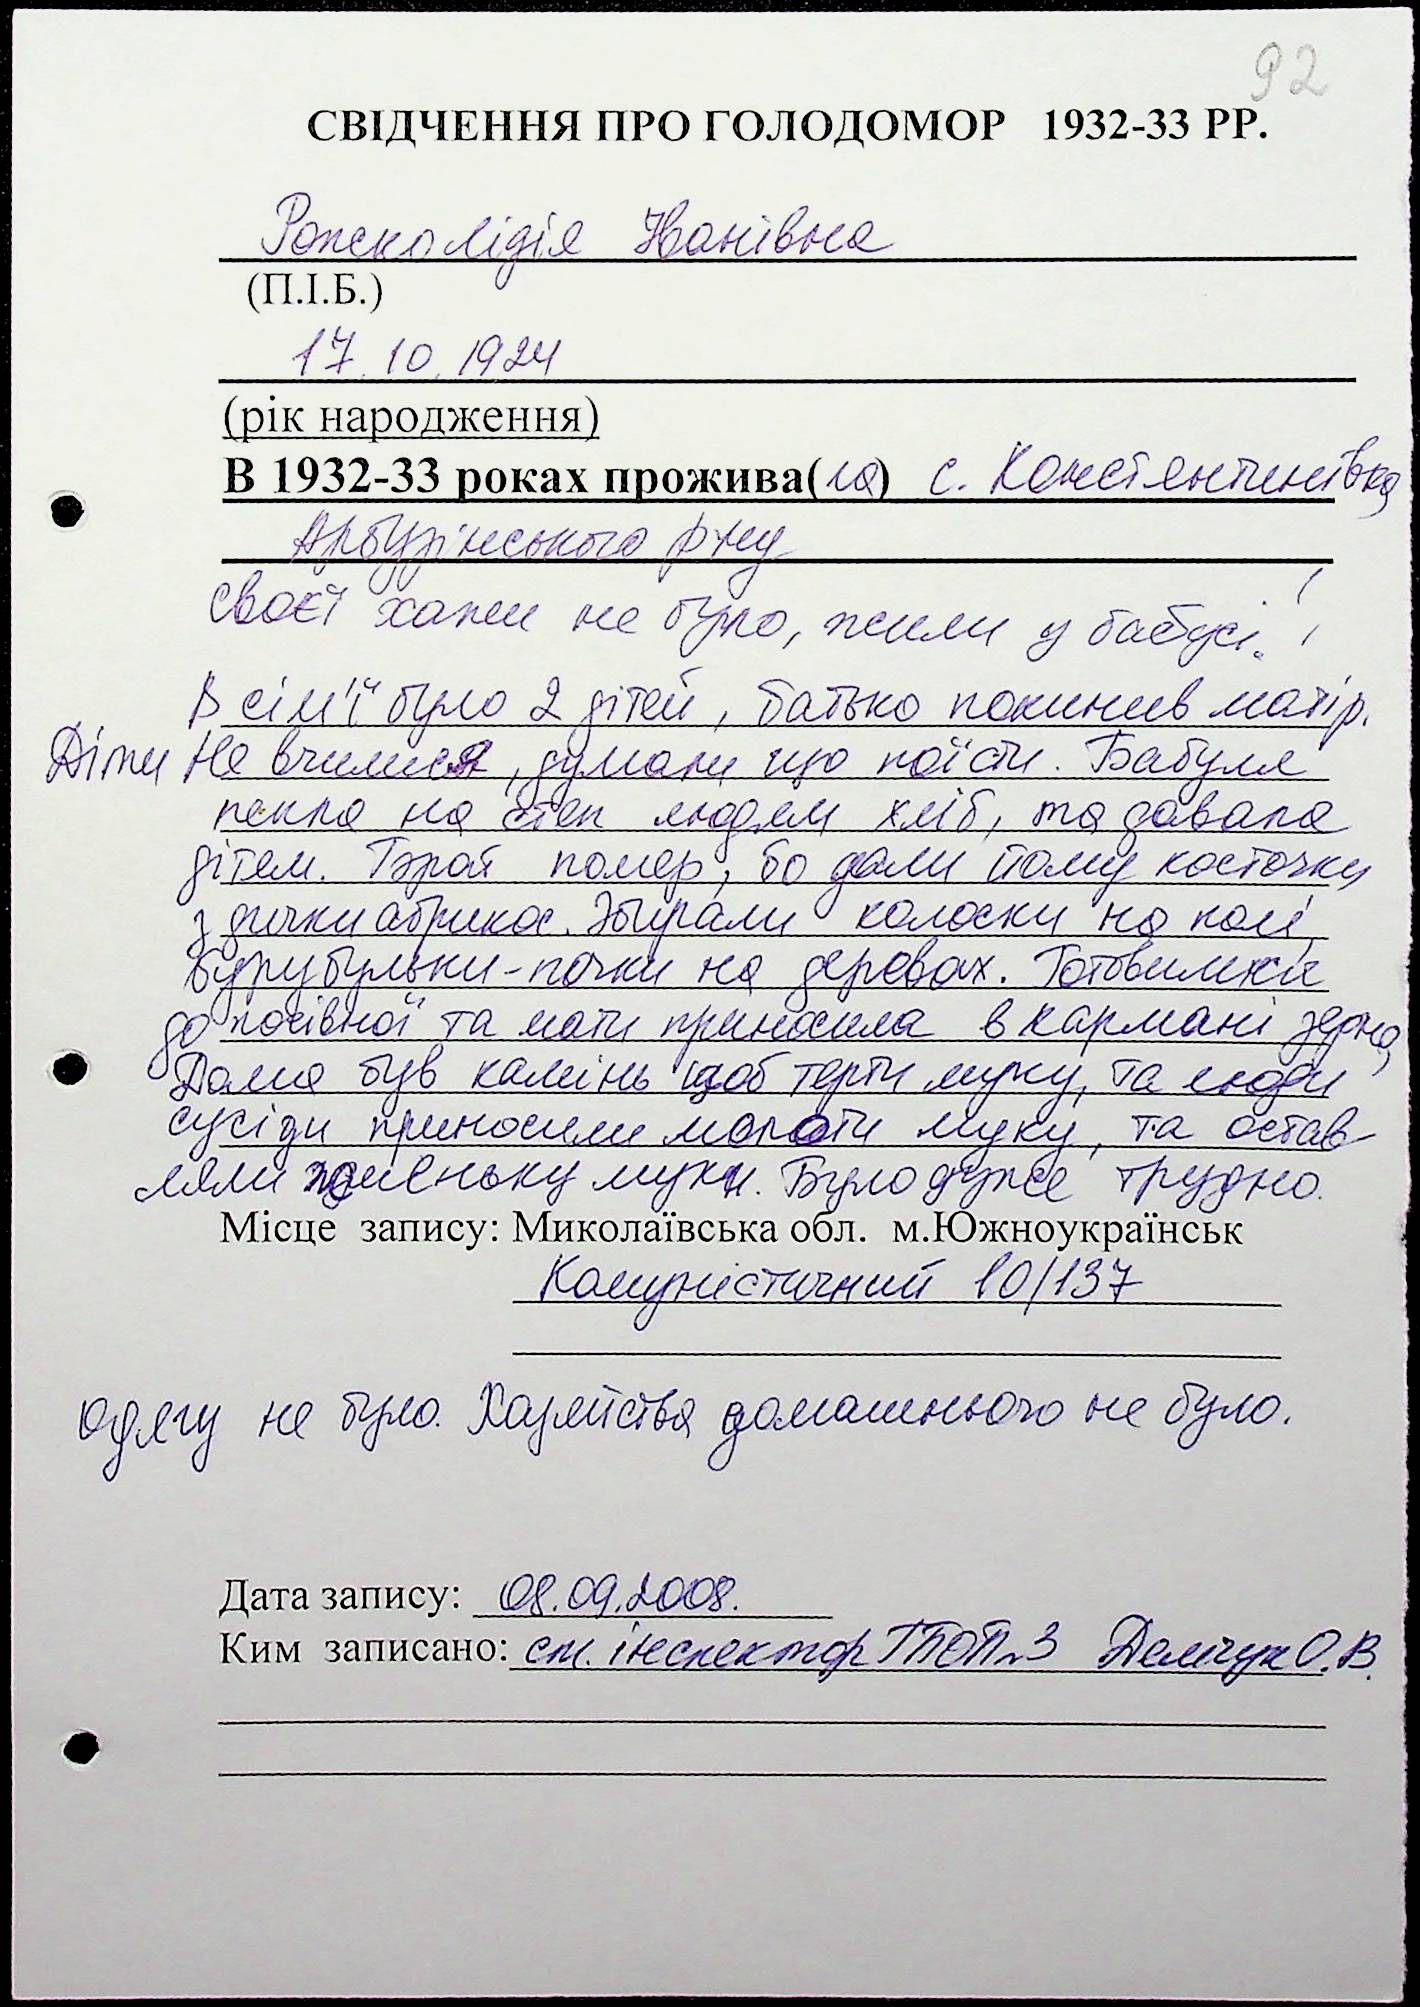 92
СВІДЧЕННЯ ПРО ГОЛОДОМОР 1932-33 РР.
Лідія Іванівна
(П.І.Б.)
17.10.1924
(рік народження)
В 1932-33 роках прожива(ла) с. Костянтинівка
Арбузінського р-ну
своєї хати не було, жили у бабусі.
В сім'ї було 2 дітей, батько покинив матір.
Діти не вчилися, думали що поїсти. Бабуля
пекла на степ людям хліб, та давала
дітем. Брат помер, бо дали йому косточки
з дички абрикос. Збирали колоски на полі,
бурубульки-почки на деревах. Готовилися
до посівної та мати приносила в кармані зерно,
Дома був камінь щоб терти муку, та люди
сусіди приносили молоти муку, та остав
ляли жменьку муки. Було дуже трудно.
Місце запису: Миколаївська обл. м.Южноукраїнськ
Комуністичний 10/137
одягу не було. Хазяйства домашнього не було.
Дата запису: 08.09.2008.
Ким записано: ст. інспектор О.В.